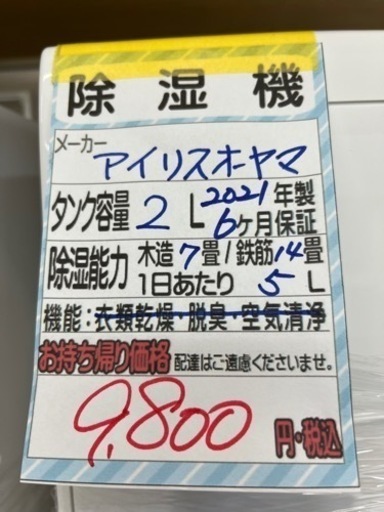 除湿機
メーカー アイリスオーヤマ
タンク容量 2L 2021年製
6ヶ月保証
除湿能力 木造7畳/鉄筋14畳
1日あたり 5L
機能：衣類乾燥・脱臭・空気清浄
お持ち帰り価格 配達はご遠慮くださいませ。
9,800円・税込